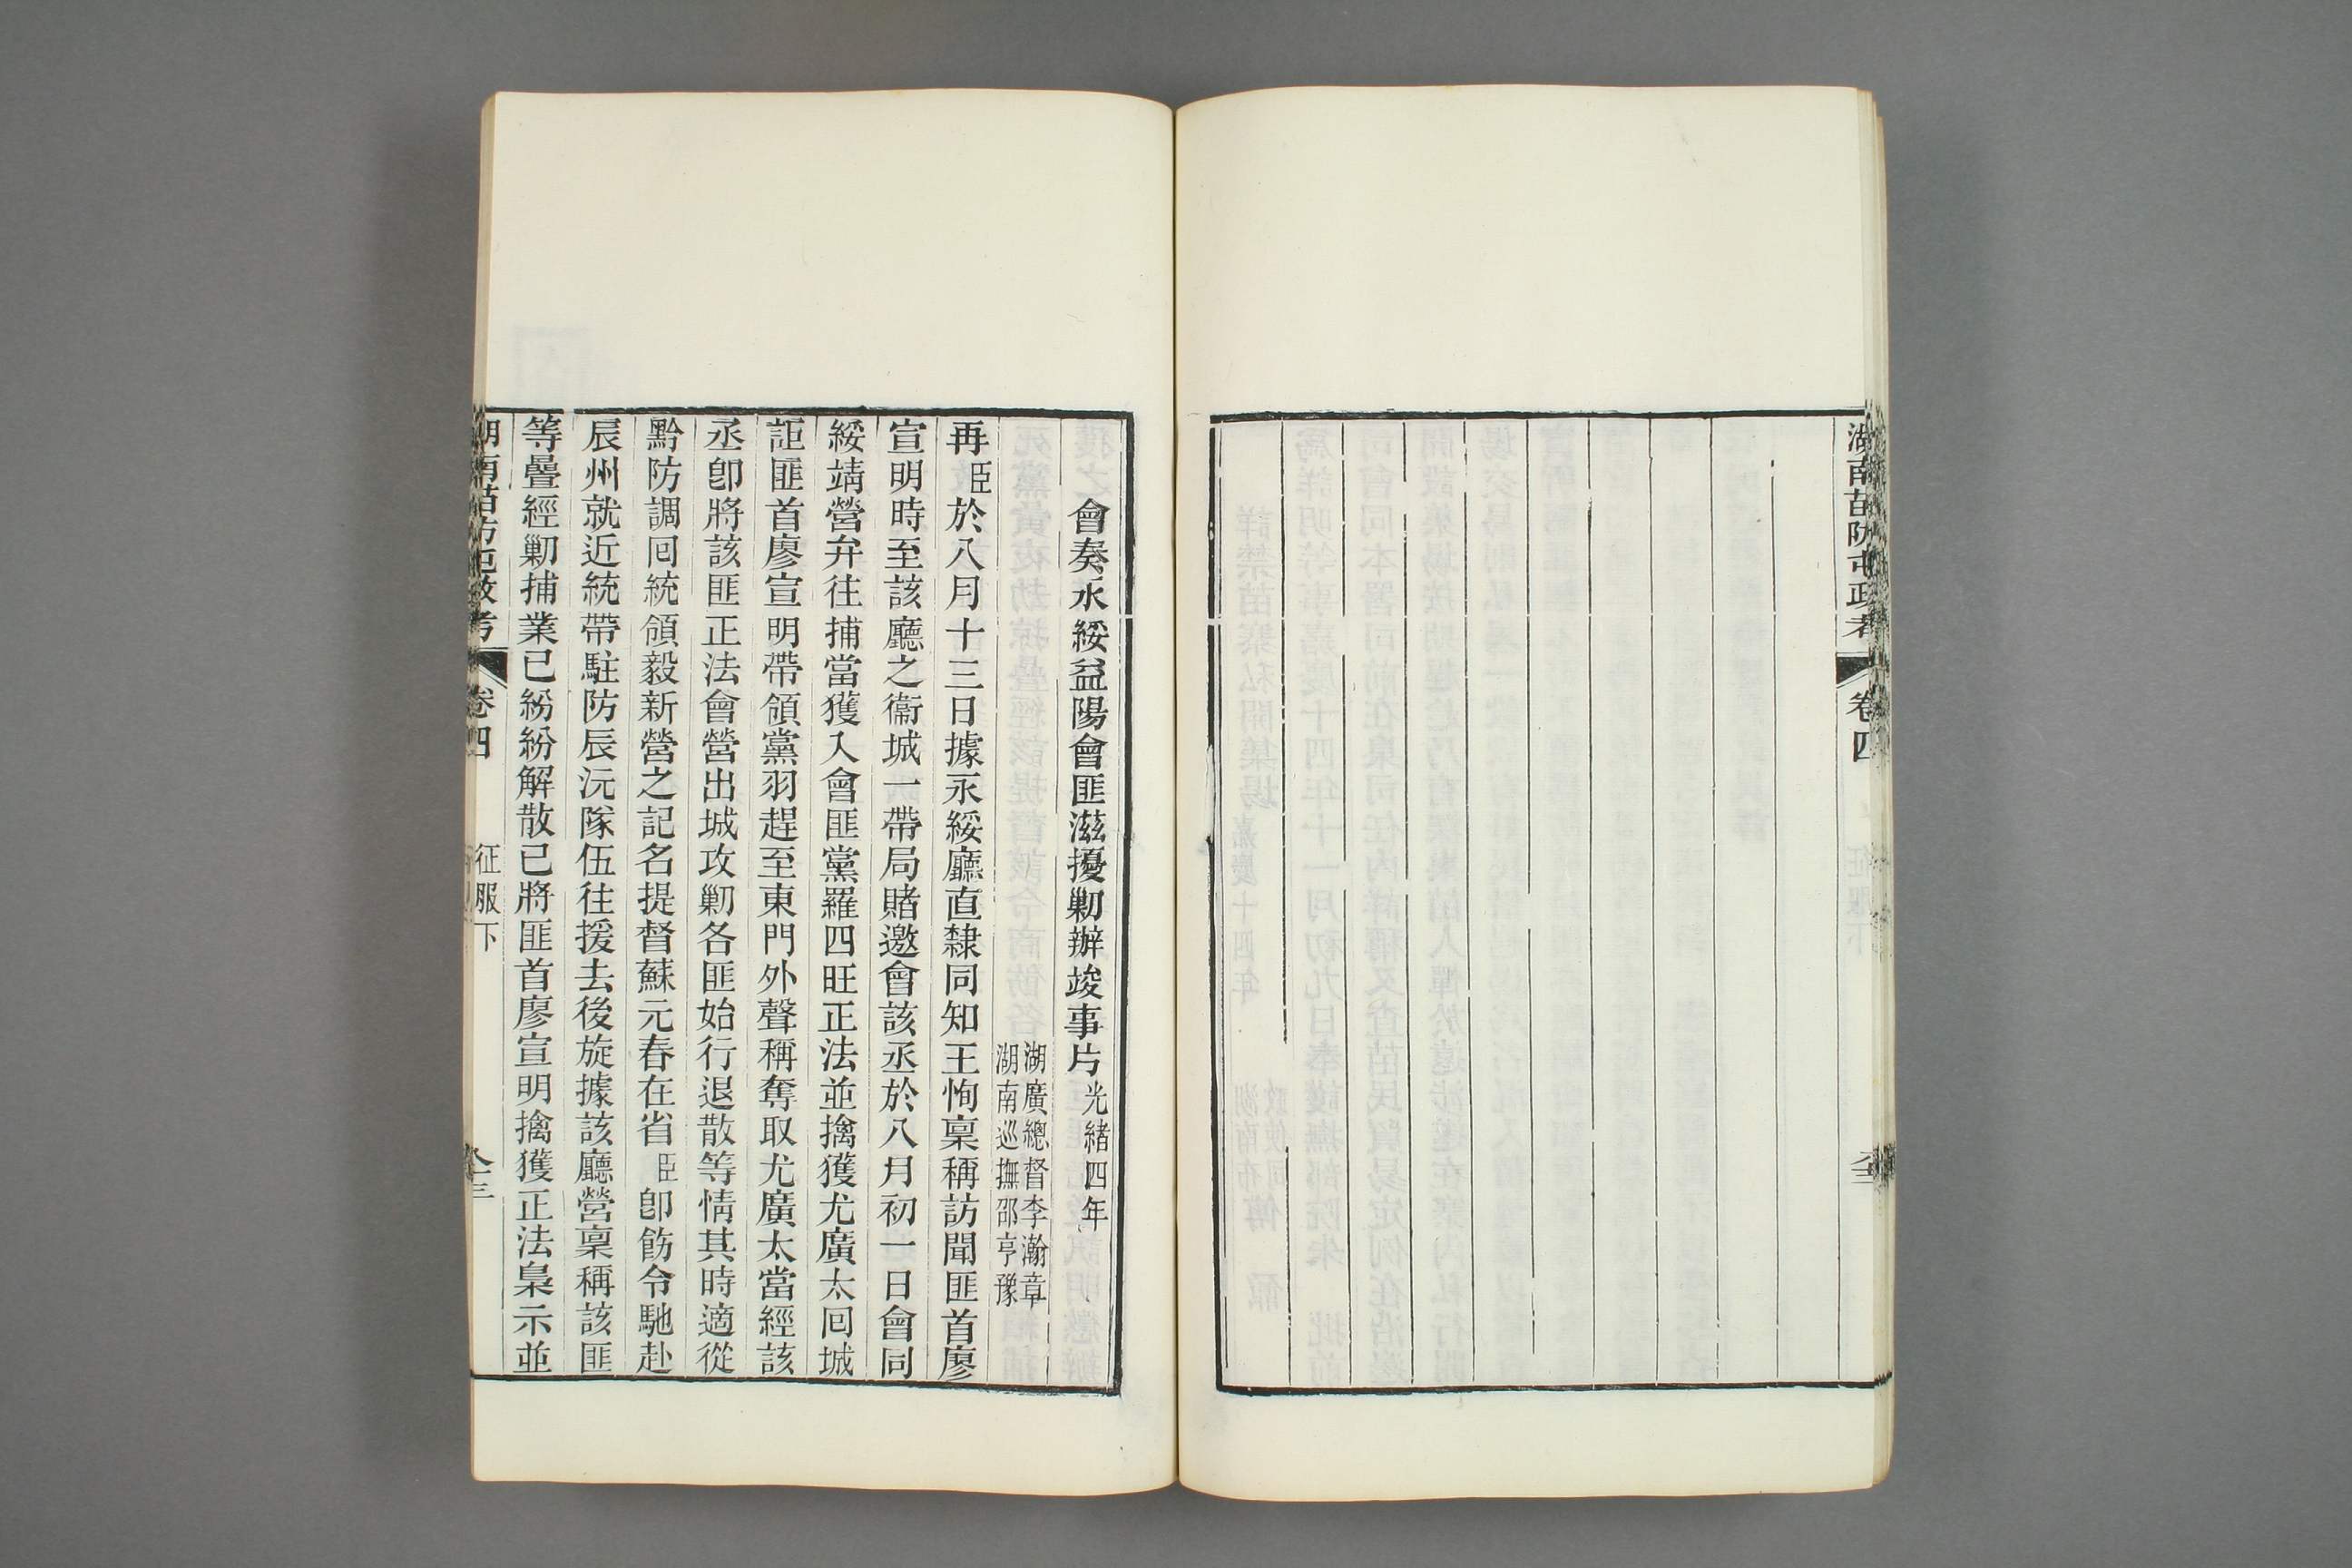 湖南苗防屯政考
卷四
會奏永綏益陽會匪滋擾剿辦竣事片光緒四年
湖廣總督李瀚章
湖南巡撫邵亨豫
再臣於八月十三日據永綏廳直隸同知王恂稟稱訪聞匪首廖
宣明時至該廳之衞城一帶局賭邀會該丞於八月初一日會同
綏靖營弁往捕當獲入會匪黨羅四旺正法並擒獲尤廣太囘城
詎匪首廖宣明帶領黨羽趕至東門外聲稱奪取尤廣太當經該
丞卽將該匪正法會營出城攻剿各匪始行退散等情其時適從
黔防調囘統領毅新營之記名提督蘇元春在省臣卽飭令馳赴
辰州就近統帶駐防辰沅隊伍往援去後旋據該廳營稟稱該匪
等疊經剿捕業已紛紛解散已將匪首廖宣明擒獲正法梟示並
湖南苗防屯政考
卷四
征服下